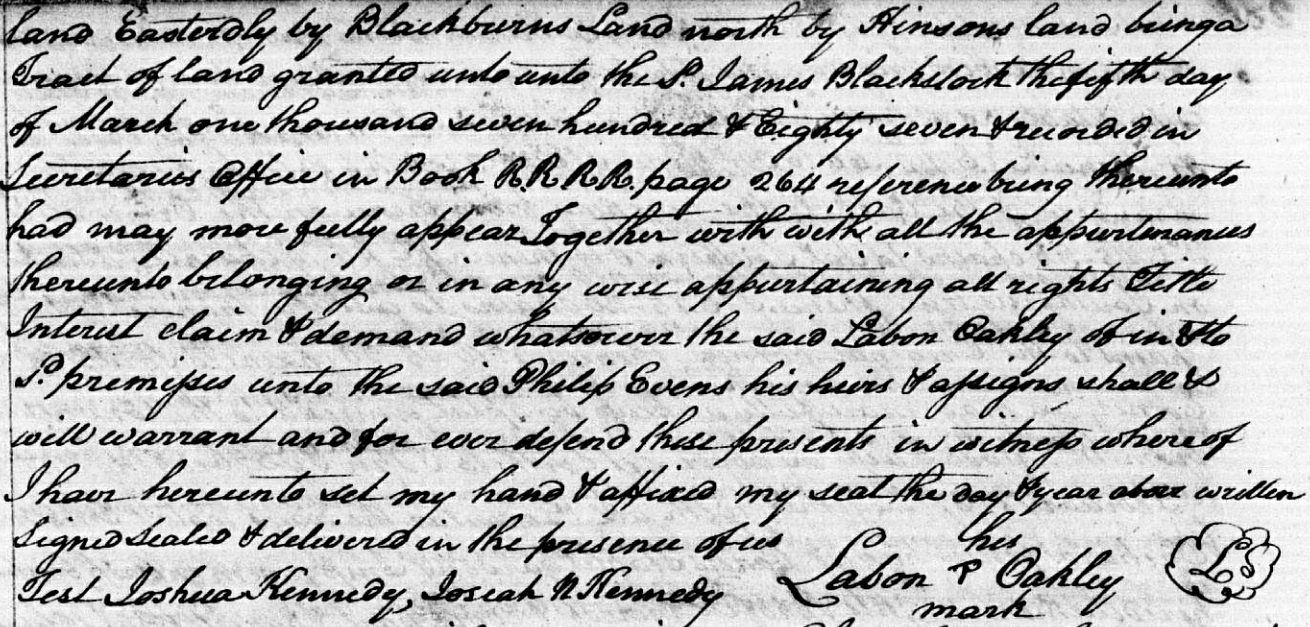 land Easterdly by Blackburns Land north by Hinsons land being a
Tract of land granted unto unto the Sd. James Blackstock the fifth day
of March one thousand seven hundred & Eighty seven & recorded in
Secretaries Office in Book R.R.R.R. page 264 reference being thereunto
had may more fully appear Together with with all the appurtenances
thereunto belonging or in any wise appurtaining all rights Title
Interest claim & demand whatsoever the said Labon Oakley of in & to
Sd. premises unto the said Philip Evens his heirs & assigns shall &
will warrant and for ever defend these presents in witness where of
I have hereunto set my hand & affixed my seal the day & year above written
Signed Sealed & delivered in the presence of us his
Test Joshua Kennedy, Josiah N Kennedy Labon P Oakley LS
mark